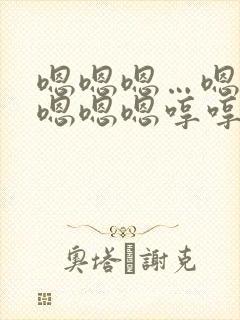 嗯嗯嗯…嗯
嗯嗯嗯哼哼
奥塔謝克